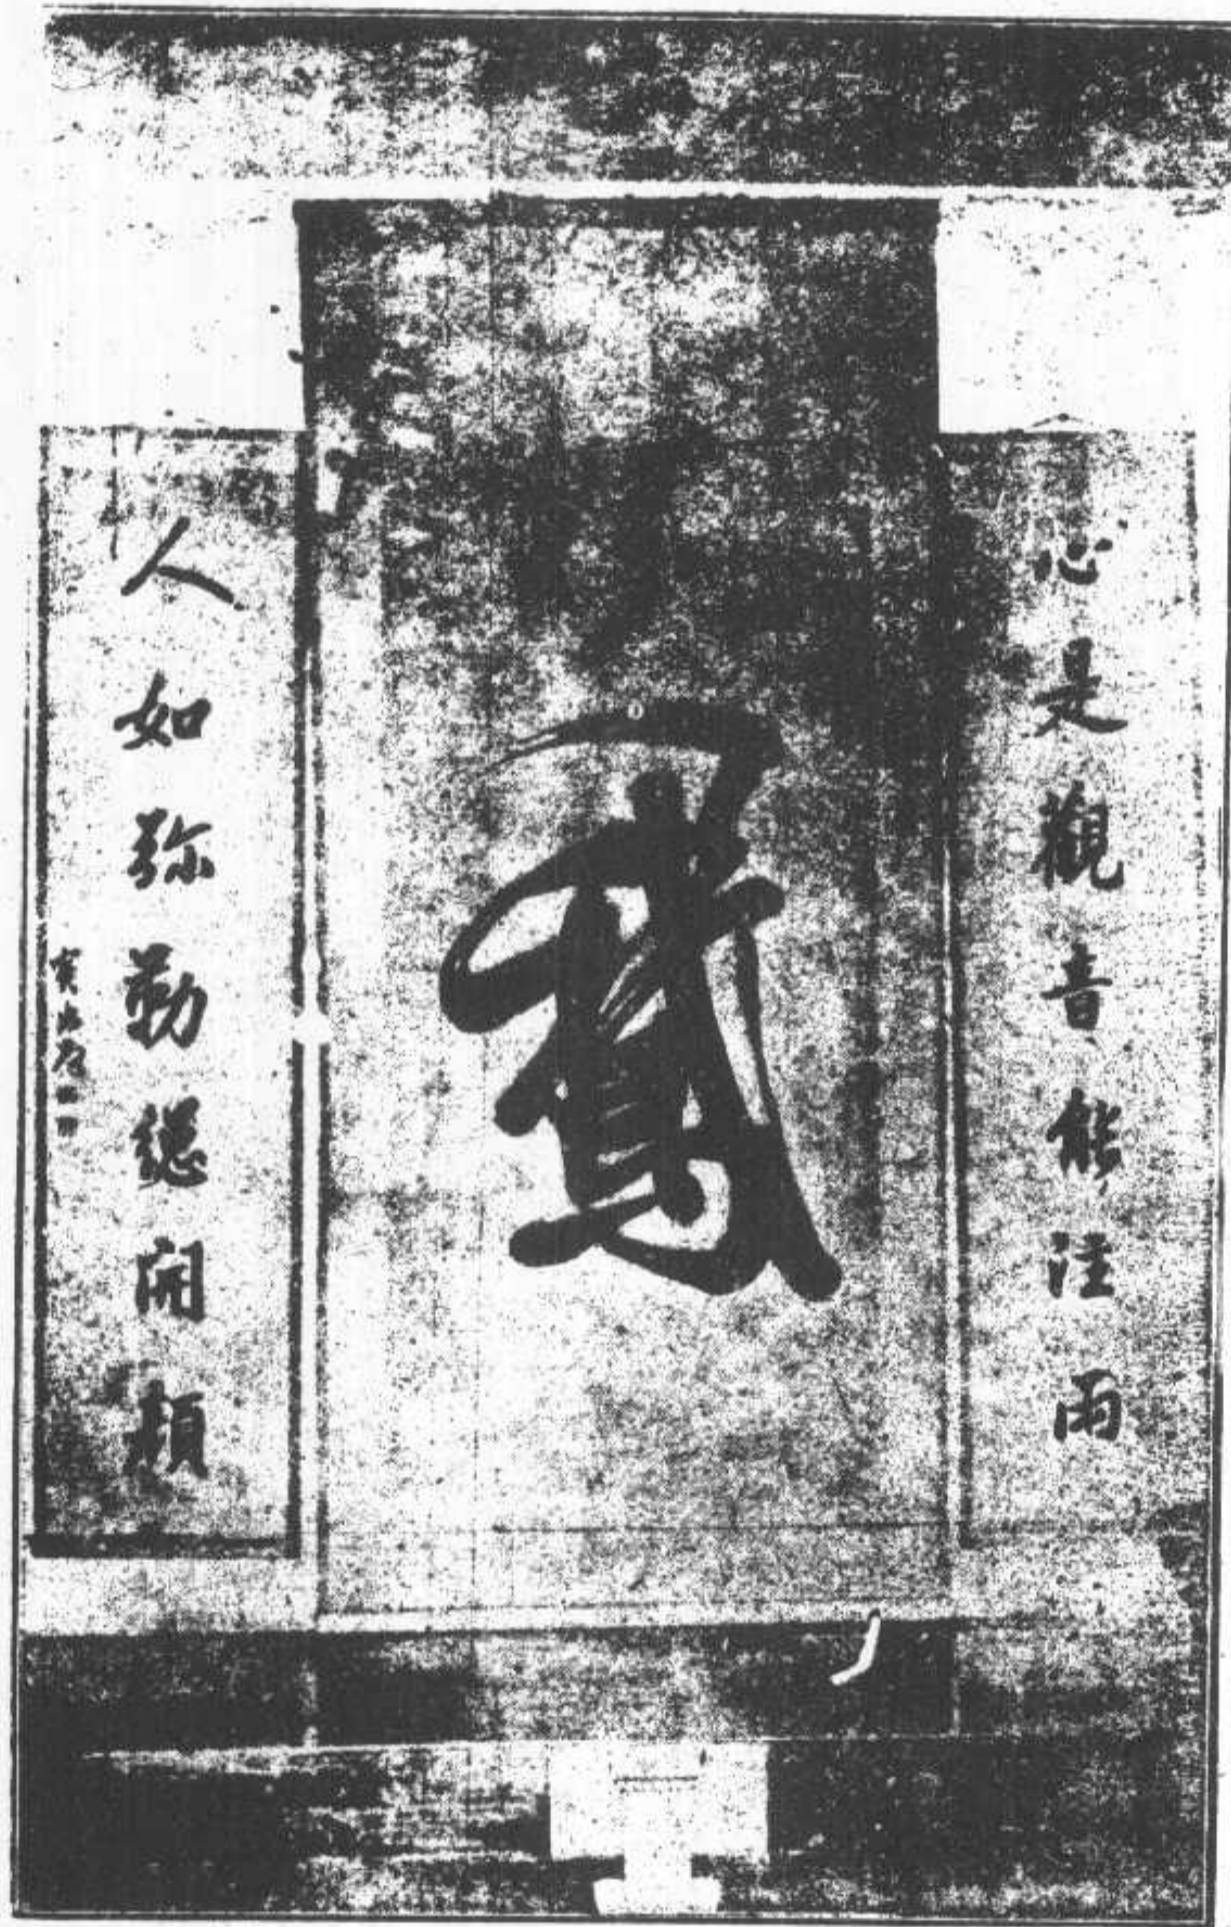 心是觀音能注雨
人如弥勒總開顏